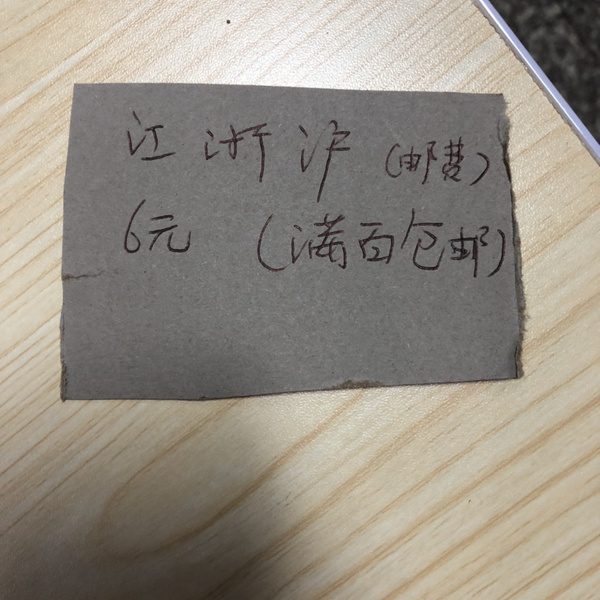 江浙沪（邮费）
6元（满百包邮）